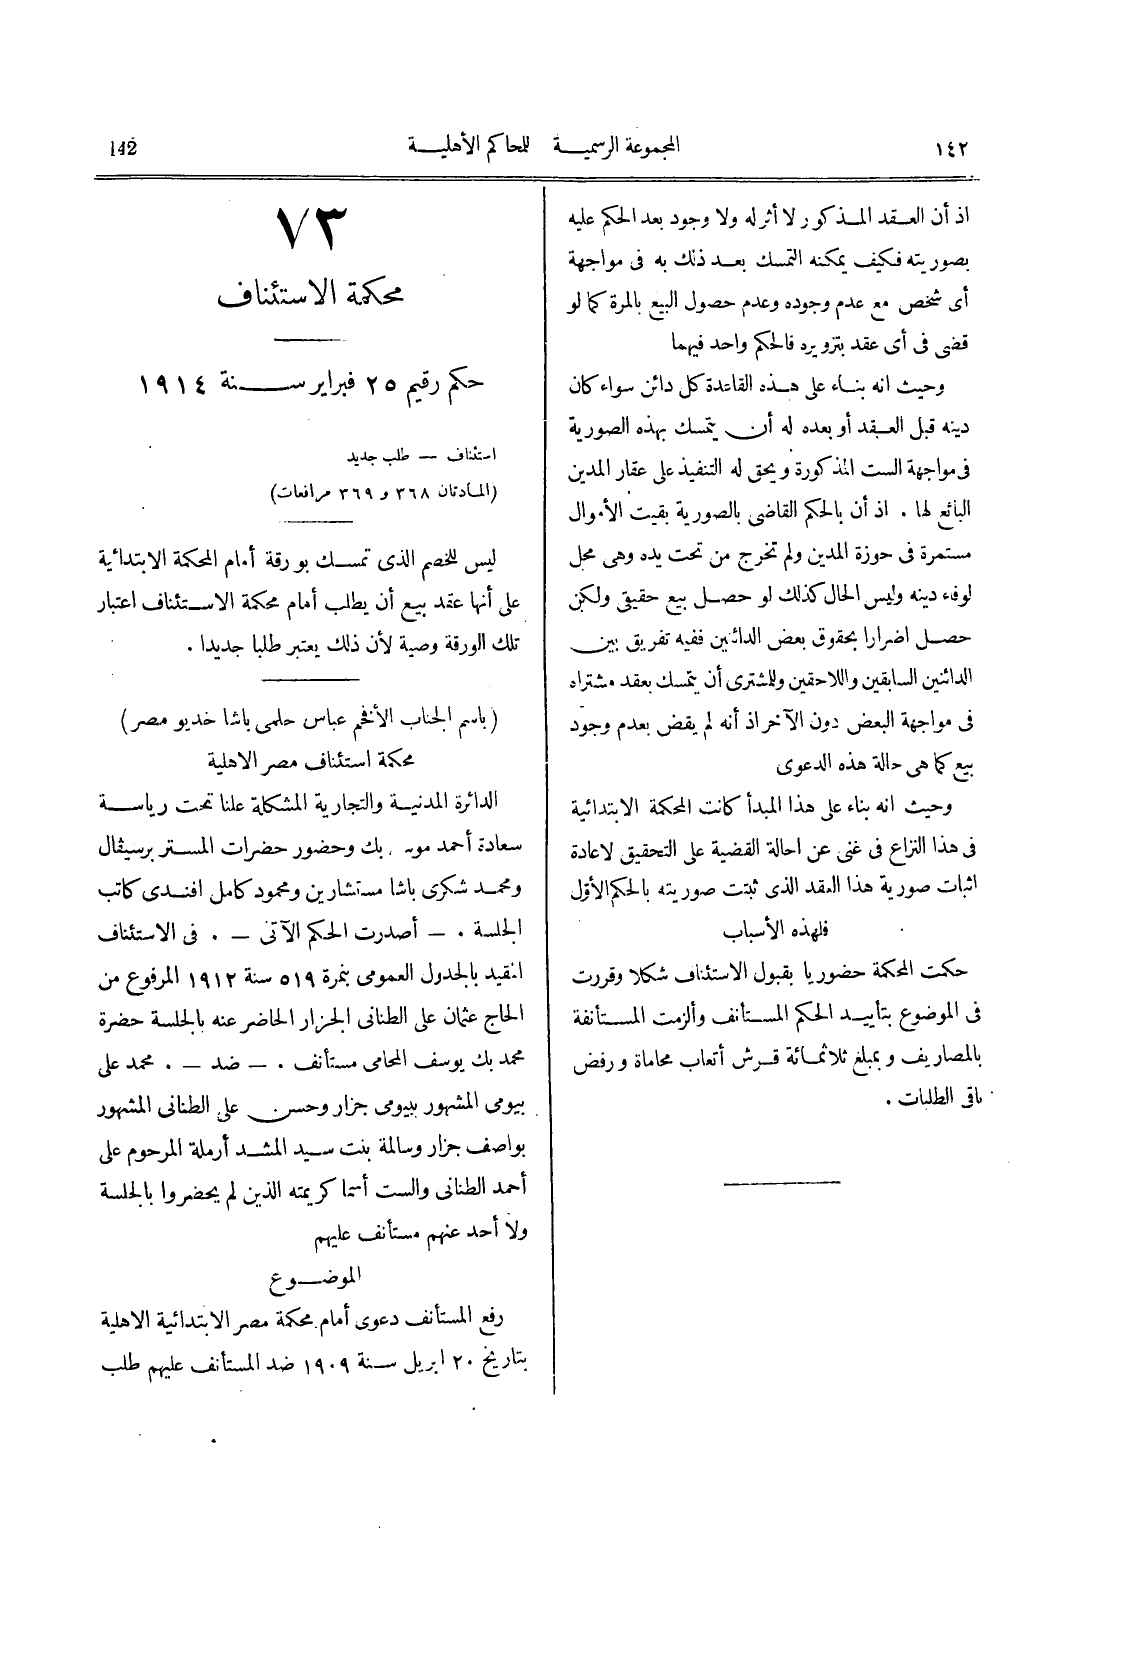 ١٤٢ المجموعة الرسمية للمحاكم الأهلية 142
اذ أن العقد المذكور لا أثر له ولا وجود بعد الحكم عليه
بصوريته فكيف يمكنه التمسك بعد ذلك به فى مواجهة
أى شخص مع عدم وجوده وعدم حصول البيع بالمرة كما لو
قضى فى أى عقد بتزويره فالحكم واحد فيهما
وحيث انه بناء على هذه القاعدة كل دائن سواء كان
دينه قبل العقد أو بعده له أن يتمسك بهذه الصورية
فى مواجهة الست المذكورة ويحق له التنفيذ على عقار المدين
البائع لها . اذ أن بالحكم القاضى بالصورية بقيت الأموال
مستمرة فى حوزة المدين ولم تخرج من تحت يده وهى محل
لوفاء دينه وليس الحال كذلك لو حصل بيع حقيقى ولكن
حصل اضرارا بحقوق بعض الدائنين ففيه تفريق بين
الدائنين السابقين واللاحقين وللمشترى أن يتمسك بعقد مشتراه
فى مواجهة البعض دون الآخر اذ أنه لم يقض بعدم وجود
بيع كما هى حالة هذه الدعوى
وحيث انه بناء على هذا المبدأ كانت المحكمة الابتدائية
فى هذا النزاع فى غنى عن احالة القضية على التحقيق لاعادة
اثبات صورية هذا العقد الذى ثبتت صوريته بالحكم الأول
فلهذه الأسباب
حكمت المحكمة حضوريا بقبول الاستئناف شكلا وقررت
فى الموضوع بتأييد الحكم المستأنف وألزمت المستأنفة
بالمصاريف وبمبلغ ثلاثمائة قرش أتعاب محاماة ورفض
باقى الطلبات .
٧٣
محكمة الاستئناف
حكم رقيم ٢٥ فبراير سنة ١٩١٤
استئناف — طلب جديد
(المادتان ٣٦٨ و ٣٦٩ مرافعات)
ليس للخصم الذى تمسك بورقة أمام المحكمة الابتدائية
على أنها عقد بيع أن يطلب أمام محكمة الاستئناف اعتبار
تلك الورقة وصية لأن ذلك يعتبر طلبا جديدا .
(باسم الجناب الأفخم عباس حلمى باشا خديو مصر)
محكمة استئناف مصر الاهلية
الدائرة المدنية والتجارية المشكلة علنا تحت رياسة
سعادة أحمد بك وحضور حضرات المستر برسيڤال
ومحمد شكرى باشا مستشارين ومحمود كامل افندى كاتب
الجلسة . — أصدرت الحكم الآتى — . فى الاستئناف
المقيد بالجدول العمومى بنمرة ٥١٩ سنة ١٩١٢ المرفوع من
الحاج عثمان على الطنانى الجزار الحاضر عنه بالجلسة حضرة
محمد بك يوسف المحامى مستأنف . — ضد — . محمد على
بيومى المشهور ببيومى جزار وحسن على الطنانى المشهور
بواصف جزار وسالمة بنت سيد المشد أرملة المرحوم على
أحمد الطنانى والست أسما كريمته الذين لم يحضروا بالجلسة
ولا أحد عنهم مستأنف عليهم
الموضوع
رفع المستأنف دعوى أمام محكمة مصر الابتدائية الاهلية
بتاريخ ٢٠ ابريل سنة ١٩٠٩ ضد المستأنف عليهم طلب